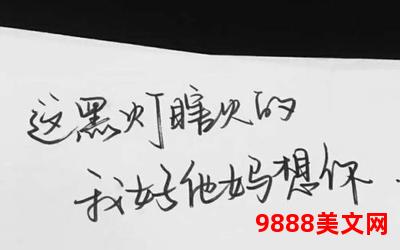 这黑灯瞎火的
我好他妈想你.
9888美文网